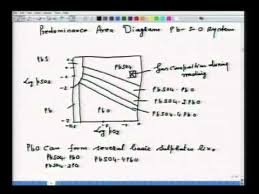 Predominance Area Diagram Pb-S-O System
PbS
PbSO4
Gas composition during
roasting
Lg pSO2
PbSO4·PbO
PbSO4·2PbO
PbSO4·4PbO
Pb
PbO
Lg pO2
PbO can form several basic sulphates like
PbSO4·PbO PbSO4·4PbO
PbSO4·2PbO